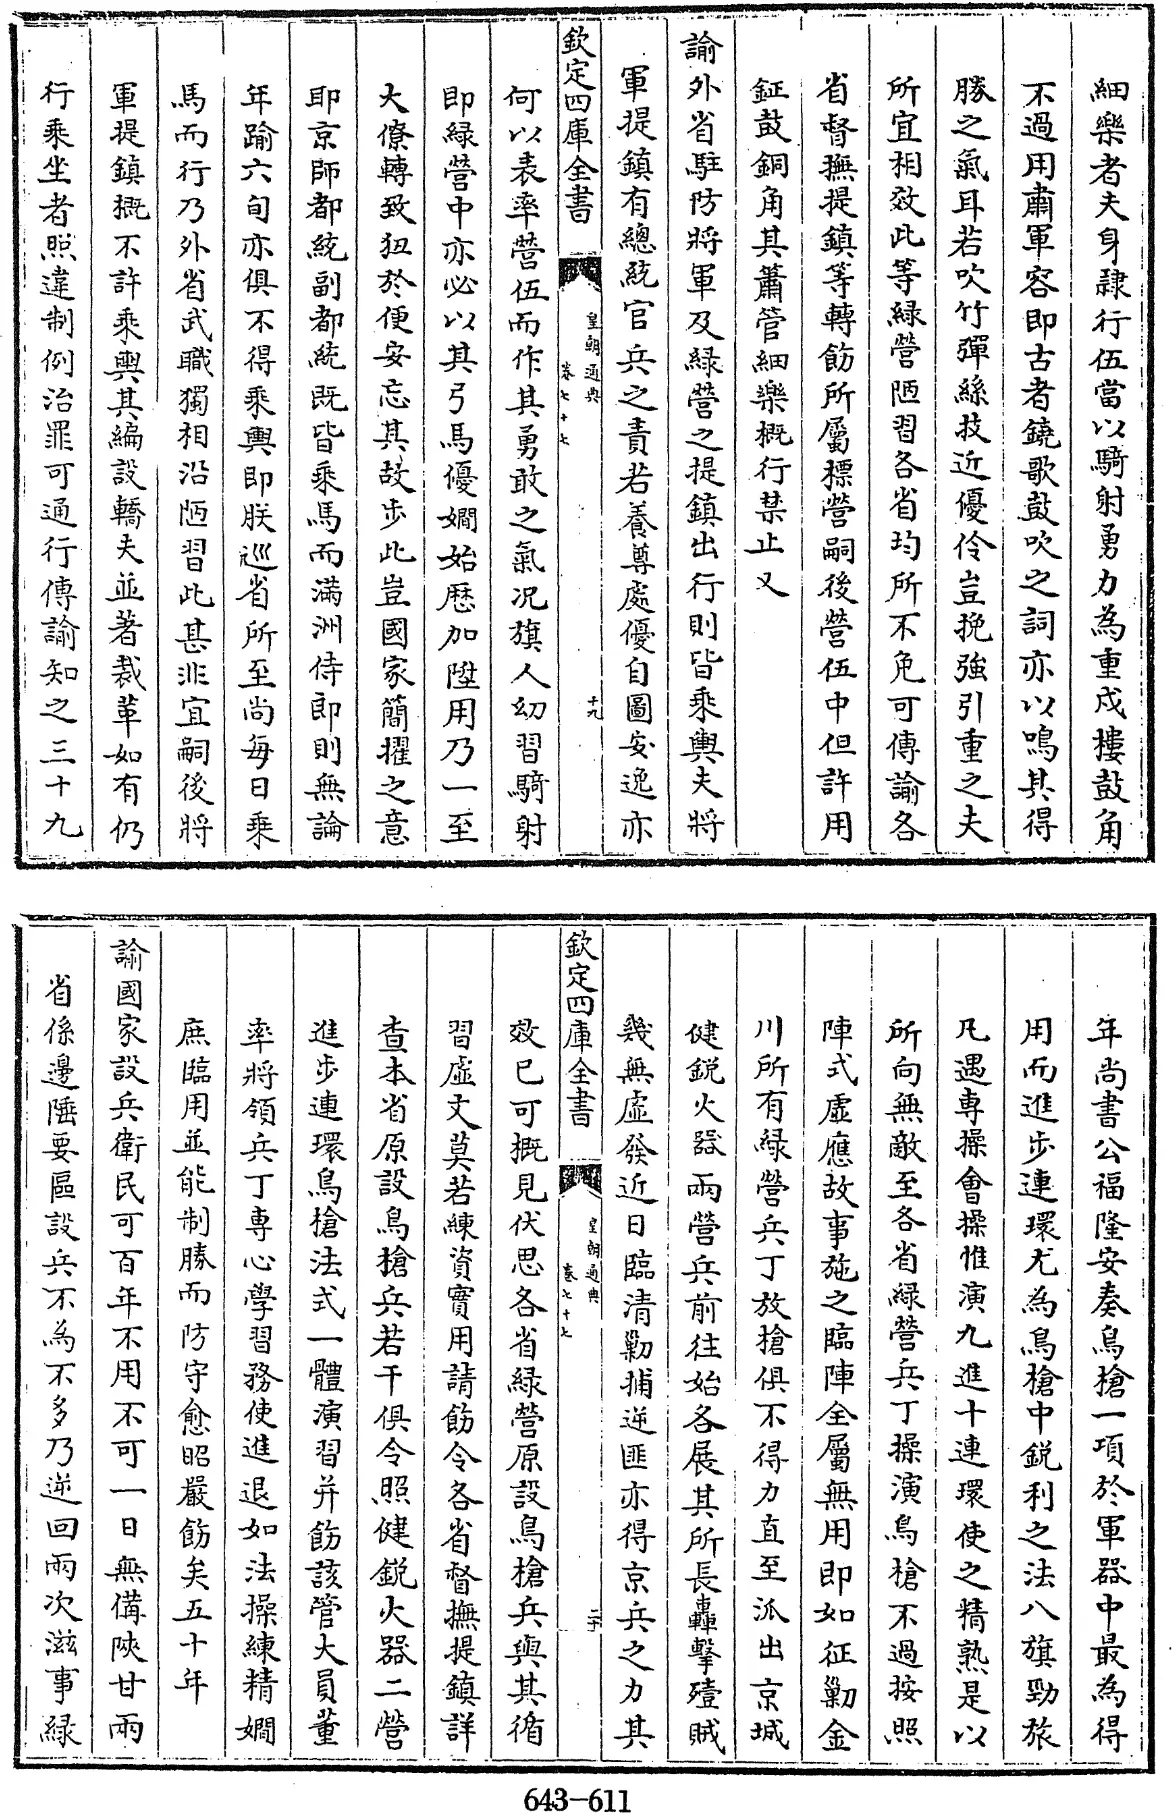 細樂者夫身隷行伍當以騎射勇力為重戍樓鼓角
不過用肅軍容即古者鐃歌鼓吹之詞亦以鳴其得
勝之氣耳若吹竹彈絲技近優伶豈挽強引重之夫
所宜相效此等緑營陋習各省均所不免可傳諭各
省督撫提鎮等轉飭所屬標營嗣後營伍中但許用
鉦鼓銅角其簫管細樂概行禁止又
諭外省駐防將軍及緑營之提鎮出行則皆乘輿夫將
軍提鎮有總統官兵之責若養尊處優自圖安逸亦
欽定四庫全書
皇朝通典
卷七十七
十九
何以表率營伍而作其勇敢之氣况旗人幼習騎射
即緑營中亦必以其弓馬優嫺始歴加陞用乃一至
大僚轉致狃於便安忘其故步此豈國家簡擢之意
即京師都統副都統既皆乘馬而滿洲侍郎則無論
年踰六旬亦俱不得乘輿即朕巡省所至尚每日乘
馬而行乃外省武職獨相沿陋習此甚非宜嗣後將
軍提鎮概不許乘輿其編設轎夫並著裁革如有仍
行乘坐者照違制例治罪可通行傳諭知之三十九
年尚書公福隆安奏鳥槍一項於軍器中最為得
用而進步連環尤為鳥槍中鋭利之法八旗勁旅
凡遇專操會操惟演九進十連環使之精熟是以
所向無敵至各省緑營兵丁操演鳥槍不過按照
陣式虛應故事施之臨陣全屬無用即如征勦金
川所有緑營兵丁放槍俱不得力直至派出京城
健鋭火器兩營兵前往始各展其所長轟擊殪賊
幾無虛發近日臨清勦捕逆匪亦得京兵之力其
欽定四庫全書
皇朝通典
卷七十七
二十
效已可概見伏思各省緑營原設鳥槍兵與其循
習虛文莫若練資實用請飭令各省督撫提鎮詳
查本省原設鳥槍兵若干俱令照健鋭火器二營
進步連環鳥槍法式一體演習并飭該管大員董
率將領兵丁專心學習務使進退如法操練精嫺
庶臨用並能制勝而防守愈昭嚴飭矣五十年
諭國家設兵衛民可百年不用不可一日無備陝甘兩
省係邊陲要區設兵不為不多乃逆回兩次滋事緑
643-611